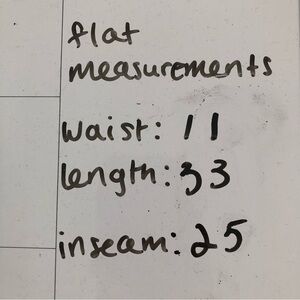 flat
measurements
waist: 11
length: 33
inseam: 25